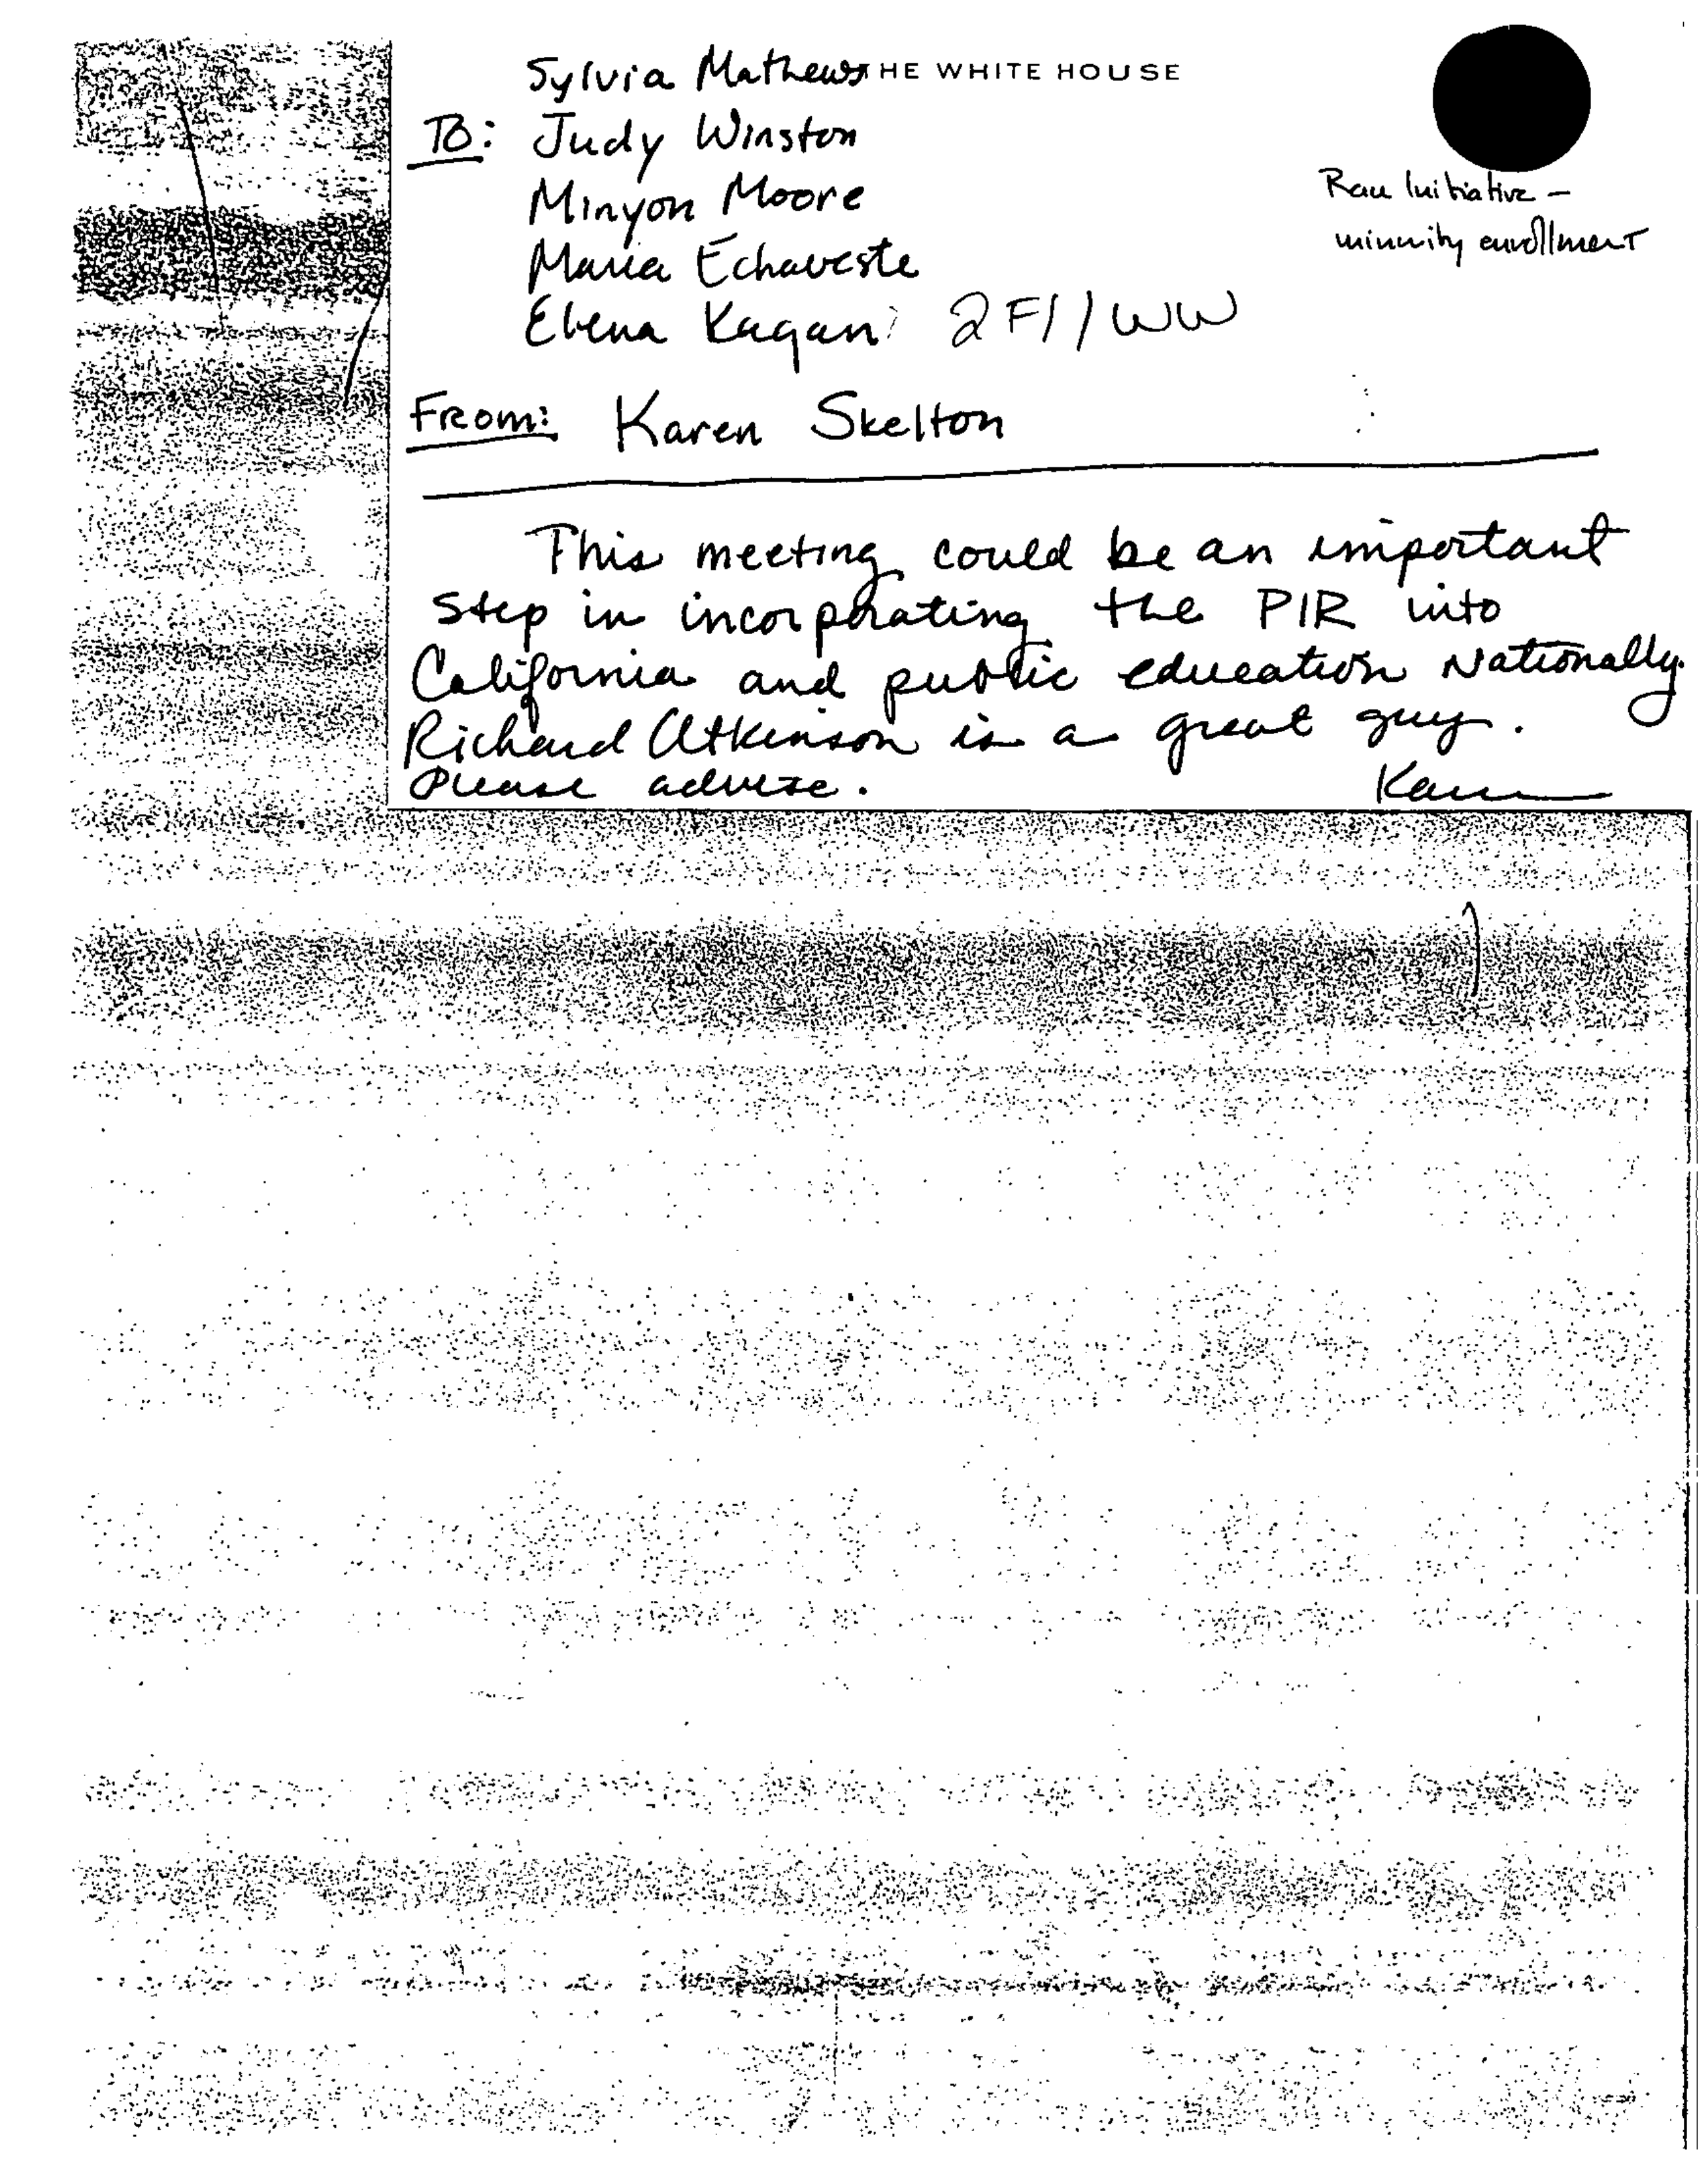 Sylvia Mathews THE WHITE HOUSE
To: Judy Winston
Minyon Moore
Maria Echaveste
Elena Kagan 2Fl/WW
Race Initiative -
minority enrollment
From: Karen Skelton
This meeting could be an important
step in incorporating the PIR into
California and public education Nationally.
Richard Atkinson is a great guy.
Please advise. Karen